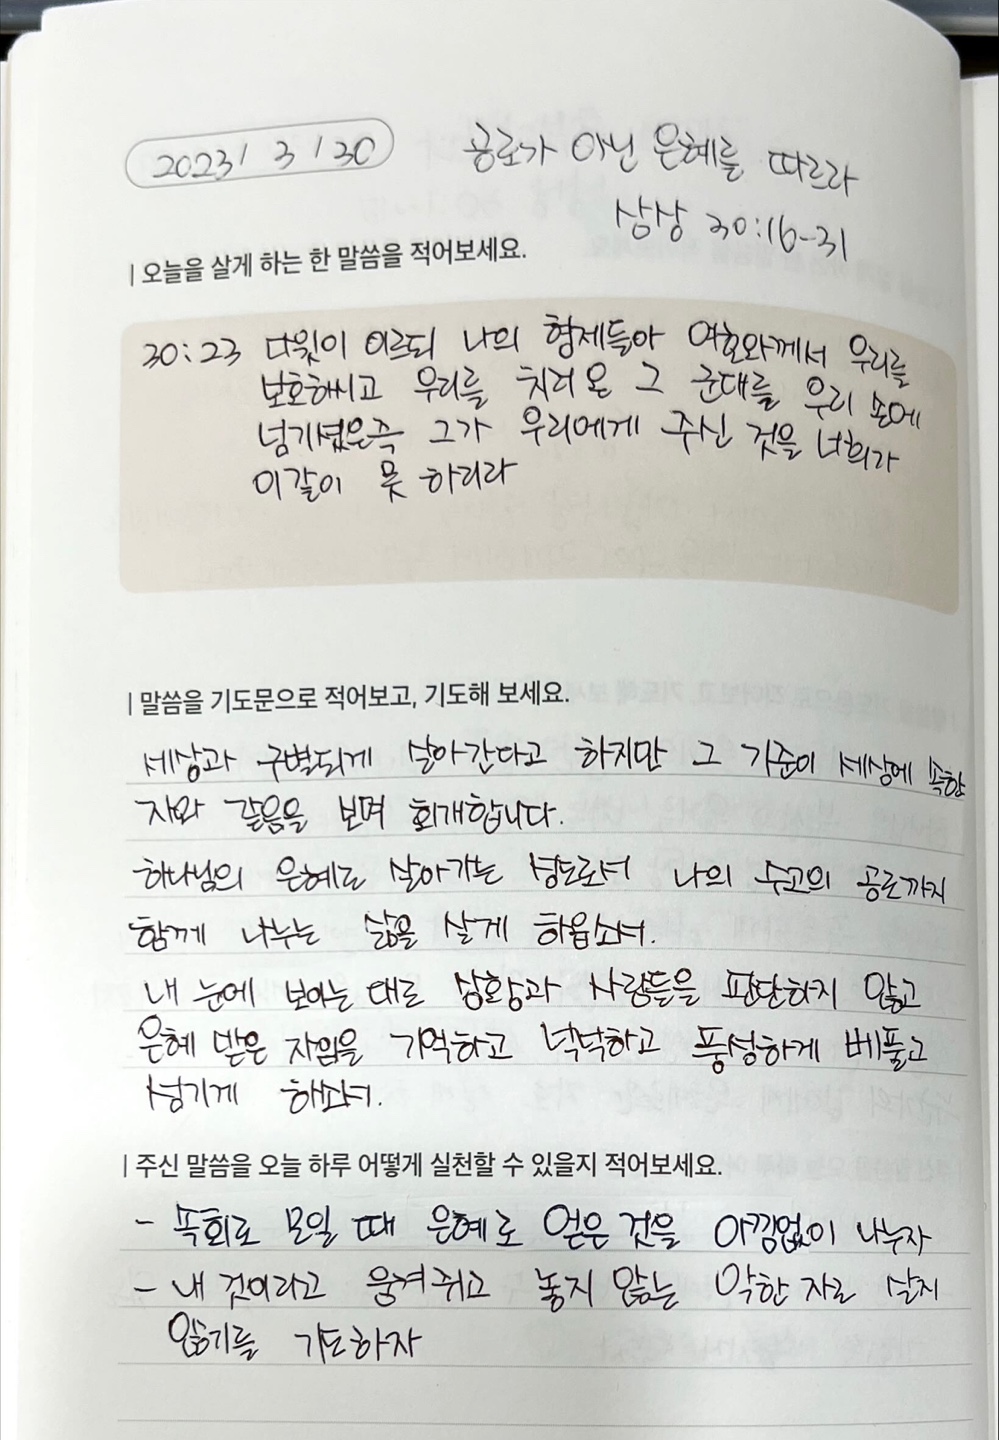 2023 / 3 / 30
공로가 아닌 은혜를 따르라
삼상 30:16-31
| 오늘을 살게 하는 한 말씀을 적어보세요.
30:23 다윗이 이르되 나의 형제들아 여호와께서 우리를
보호하시고 우리를 치러 온 그 군대를 우리 손에
넘기셨은즉 그가 우리에게 주신 것을 너희가
이같이 못 하리라
| 말씀을 기도문으로 적어보고, 기도해 보세요.
세상과 구별되게 살아간다고 하지만 그 기준이 세상에 속한
자와 같음을 보며 회개합니다.
하나님의 은혜로 살아가는 성도로서 나의 수고의 공로까지
함께 나누는 삶을 살게 하옵소서.
내 눈에 보이는 대로 상황과 사람들을 판단하지 않고
은혜 받은 자임을 기억하고 넉넉하고 풍성하게 베풀고
섬기게 하소서.
| 주신 말씀을 오늘 하루 어떻게 실천할 수 있을지 적어보세요.
- 속회로 모일 때 은혜로 얻은 것을 아낌없이 나누자
- 내 것이라고 움켜쥐고 놓지 않는 악한 자로 살지
않기를 기도하자